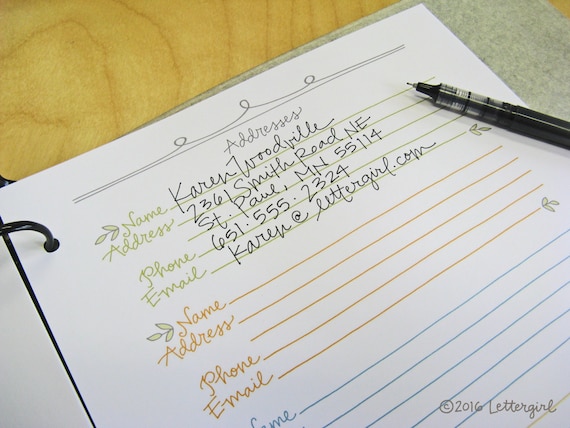 Addresses
Name Karen Woodville
Address 2361 Smith Road NE
St. Paul, MN 55114
Phone 651. 555. 2324
Email Karen@lettergirl.com
Name
Address
Phone
Email
Name
©2016 Lettergirl